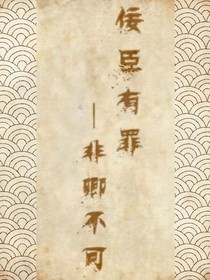 佞臣有罪
—非卿不可